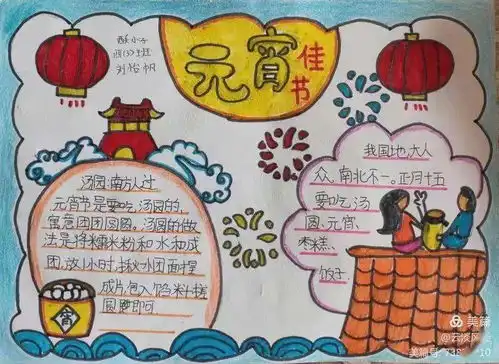 四(3)班
元宵
佳节
汤圆:南方人过
元宵节是要吃汤圆的,
寓意团团圆圆。汤圆的做
法是将糯水粉和水和成
团,放小时,揪小团面捏
成片,包入馅料,搓
圆便即可
我国地大人
众,南北不一。正月十五
要吃汤
圆、元宵、
枣糕、
饺子
宵
美篇
美篇号